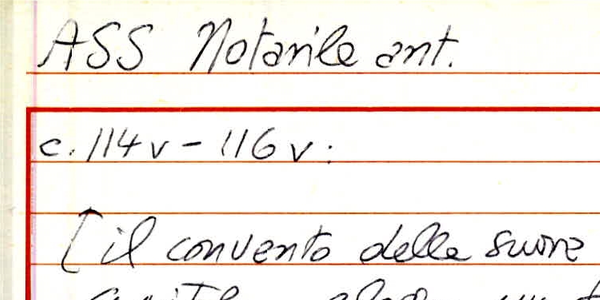 ASS Notarile ant.
c. 114v - 116v:
[il convento delle suore